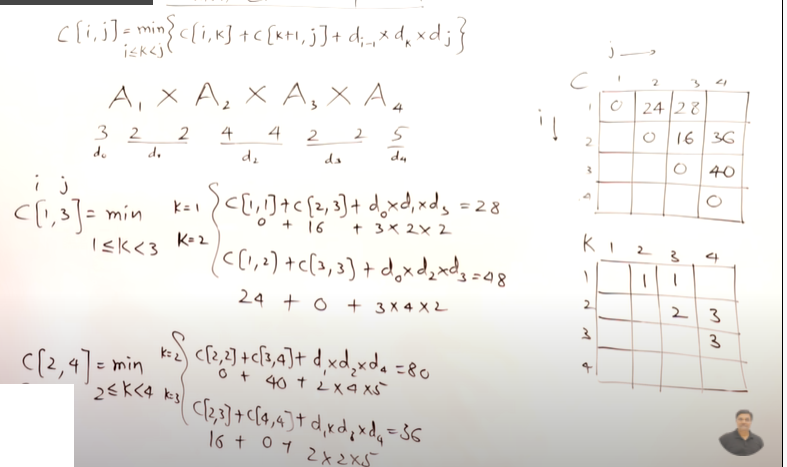 C[i,j] = min { C[i,k] + C[k+1,j] + di-1 × dk × dj }
i≤k<j
A1 × A2 × A3 × A4
3 2 2 4 4 2 2 5
d0 d1 d2 d3 d4
i j
C[1,3] = min
1≤K<3
K=1 C[1,1] + C[2,3] + d0×d1×d3 = 28
0 + 16 + 3×2×2
K=2 C[1,2] + C[3,3] + d0×d2×d3 = 48
24 + 0 + 3×4×2
C[2,4] = min
2≤K<4
K=2 C[2,2] + C[3,4] + d1×d2×d4 = 80
0 + 40 + 2×4×5
K=3 C[2,3] + C[4,4] + d1×d3×d4 = 36
16 + 0 + 2×2×5
j →
C 1 2 3 4
i ↓
1 0 24 28
2 0 16 36
3 0 40
4 0
K 1 2 3 4
1 1 1
2 2 3
3 3
4